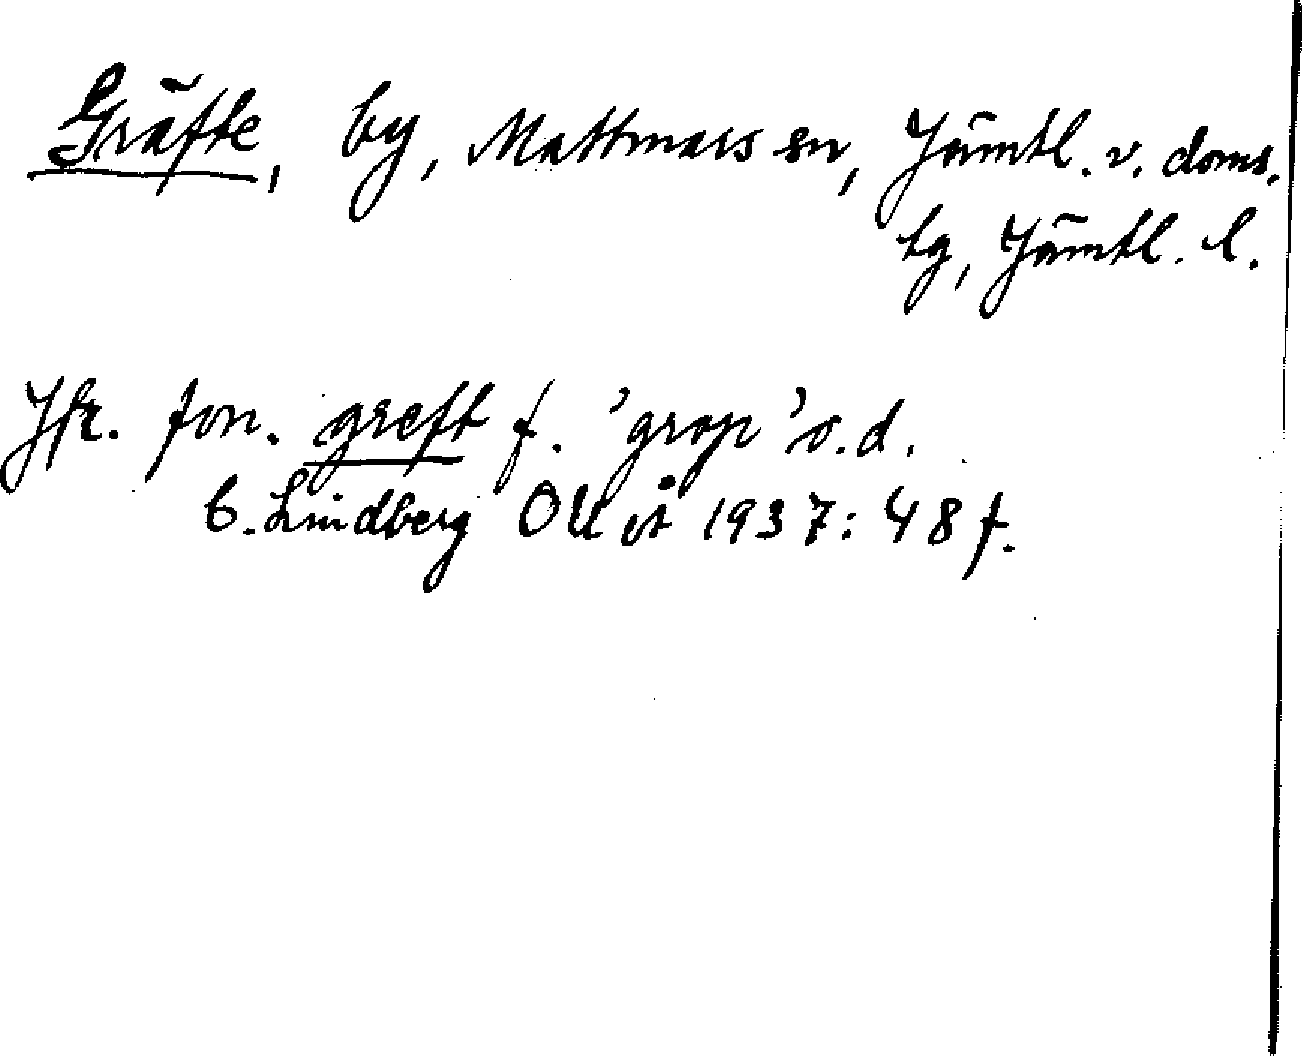 Gräfte, by, Mattmars sn, Jämtl. v. doms.
tg, Jämtl. l.
Jfr. fon. greft f. 'grop' o.d.
C. Lindberg OUÅ 1937: 48 f.